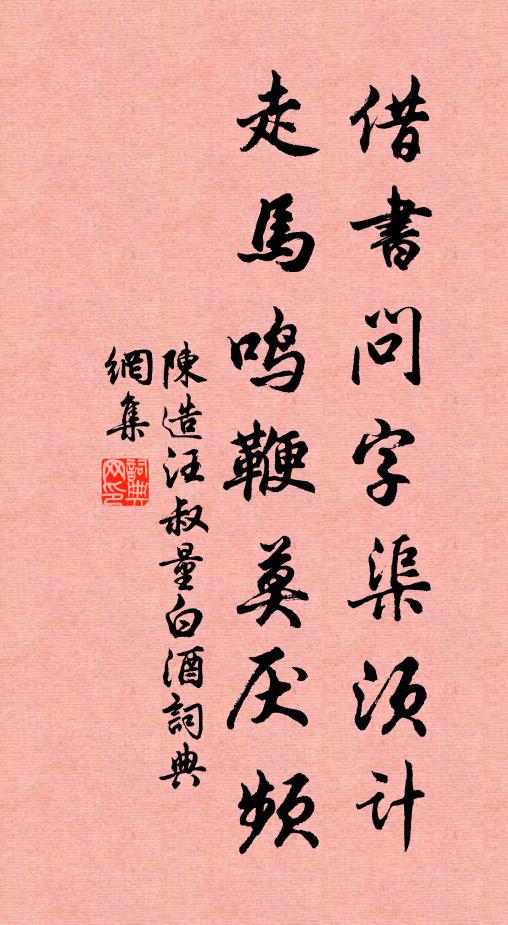 借書問字渠須計
走馬鳴鞭莫厌頻
陳造汪叔量白酒詞典
網集
詞典网印